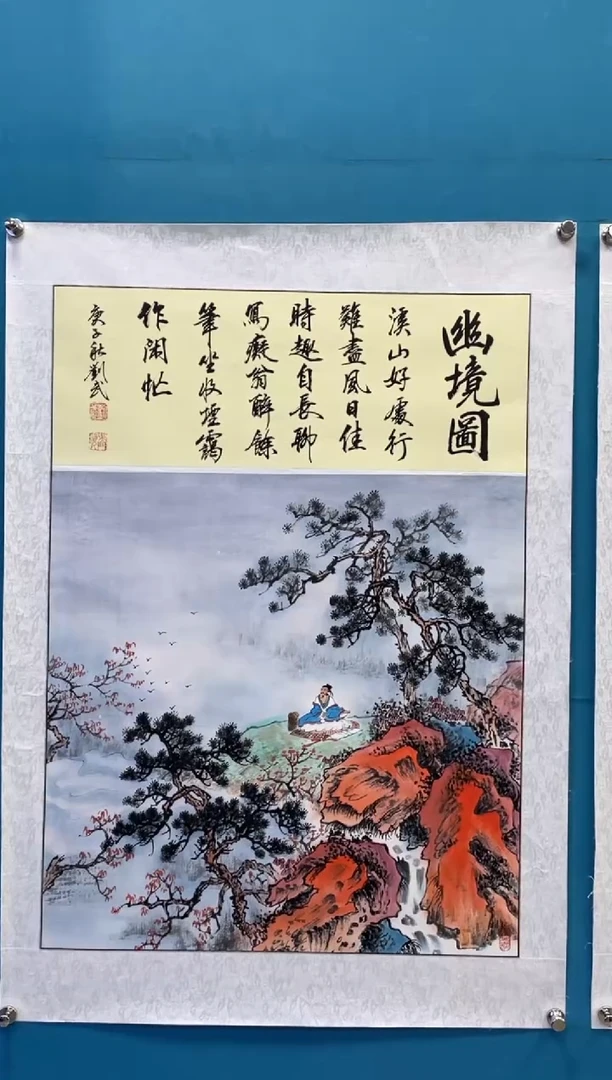 幽境圖
溪山好處行
難盡風日佳
時趣自長聊
寫癡翁醉餘
筆坐收煙靄
作閑忙
庚子秋劉武